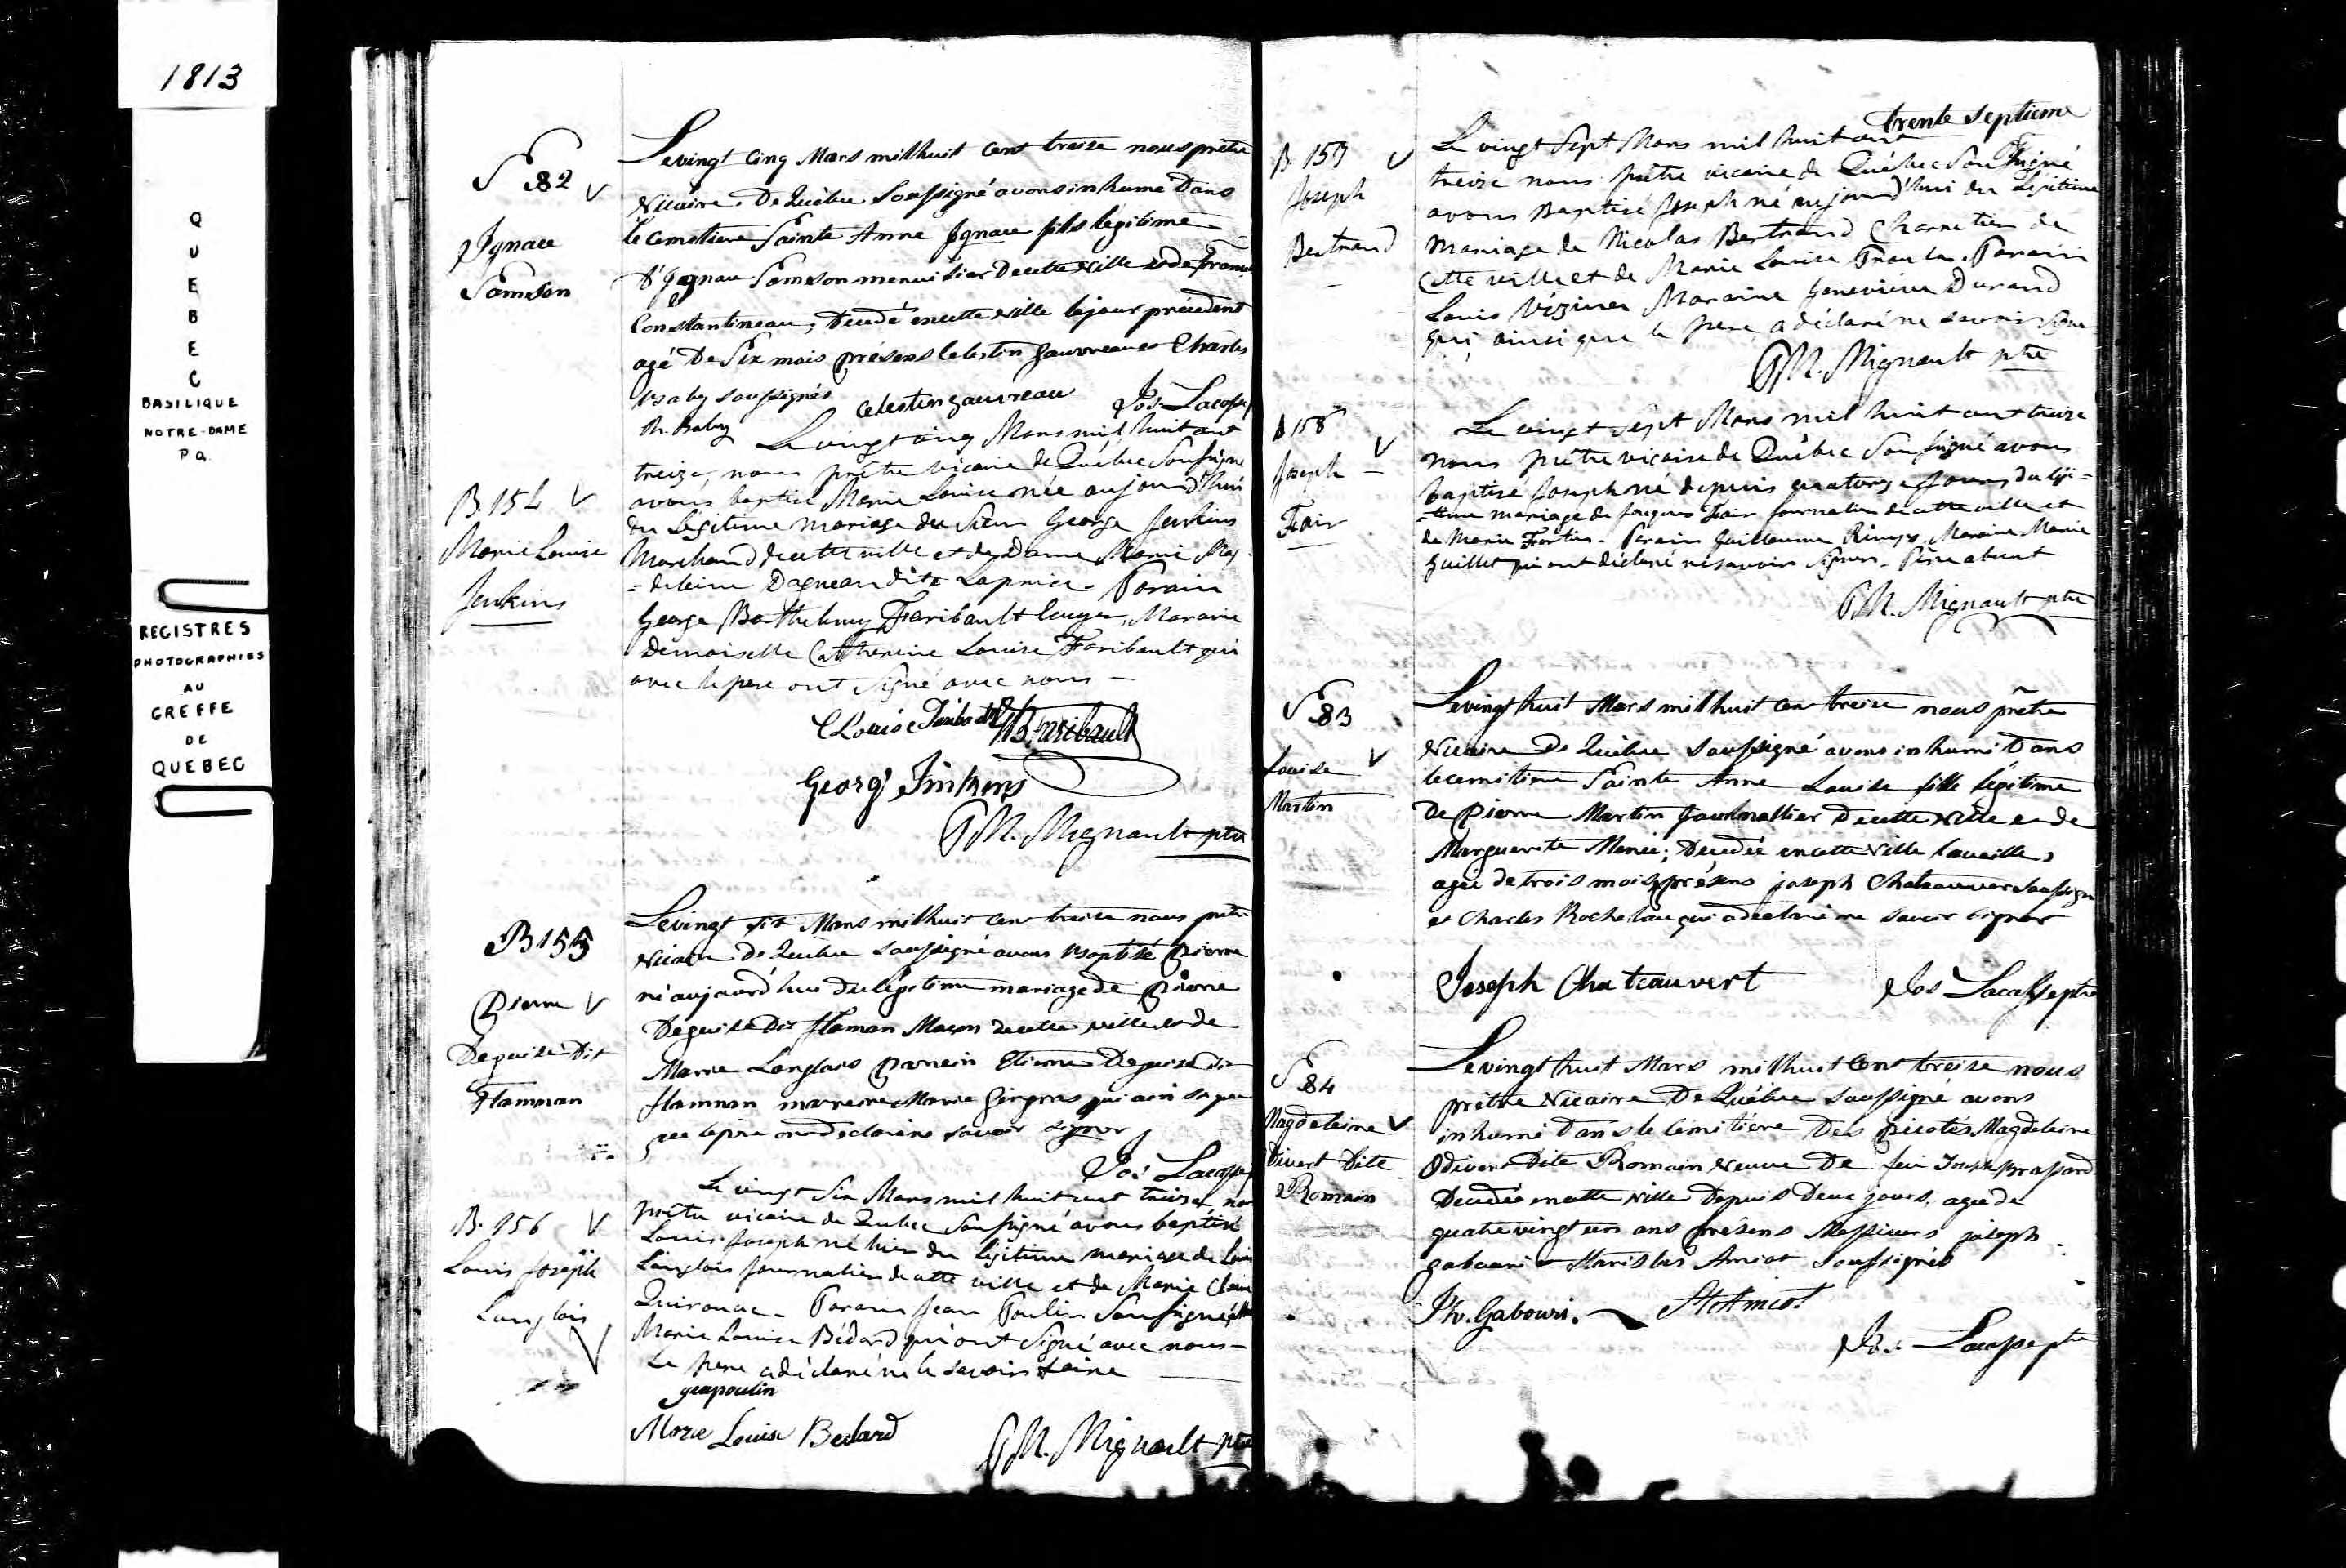 1813
QUEBEC
BASILIQUE
NOTRE-DAME
P Q
REGISTRES
PHOTOGRAPHIES
AU
GREFFE
DE
QUEBEC
S 82
Ignace
Samson
Le vingt cinq Mars mil huit cent treize nous prêtre
Vicaire De Québec Soussigné avons inhumé Dans
le Cemetiere Sainte Anne Ignace fils légitime
D'Ignace Samson menuisier De cette Ville et de
Constantineau, Décédé en cette Ville le jour précédent
agé De Six mois présens Celestin Gauvreau et Charles
Baby soussignés
celestin gauvreau Jos. Lacasse
Ch. Baby
B. 154
Marie Louise
Jenkins
Le vingt cinq Mars mil huit cent
treize, nous prêtre vicaire de Québec Soussigné
avons baptisé Marie Louise née aujourd'hui
du Légitime mariage du Sieur George Jenkins
Marchand de cette ville et de Dame Marie Mag
=deleine Dagneau dite Laprise. Parain
George Barthelemy Faribault, Maraine
Demoiselle Catherine Louise Faribault qui
avec le pere ont Signé avec nous —
C Louise GB Faribault
Georg Jinkins
P M. Mignault ptre
B 155
Pierre
Deguise Dit
Flamman
Le vingt six Mars mil huit cent treize nous prêtre
Vicaire De Québec soussigné avons Baptisé Pierre
né aujourd'hui du légitime mariage de Pierre
Deguise Dit flaman Maçon de cette ville et de
Marie Langlois parrein Etienne Deguise dit
flamman marreine Marie Gingras qui ainsi que
le pere ont déclaré ne savoir signer
Jos Lacasse
B. 156
Louis Joseph
Langlois
Le vingt Six Mars mil huit cent treize, nous
prêtre vicaire de Quebec Soussigné avons baptisé
Louis Joseph né hier du légitime mariage de Louis
Langlois Journalier de cette ville et de Marie Claire
Quirouac - Parain Jean Poulin Soussigné
Marie Louise Bédard qui ont Signé avec nous —
Le pere a déclaré ne le savoir faire
jean poulin
Marie Louise Bedard P M. Mignault ptre
trente septieme
B. 157
Joseph
Bertrand
Le vingt Sept Mars mil huit cent
treize nous prêtre vicaire de Québec Soussigné
avons Baptisé Joseph né aujourd'hui du Légitime
Mariage de Nicolas Bertrand Charretier de
Cette ville et de Marie Louise. Parain
Louis Vézina Maraine Genevieve Durand
qui ainsi que le pere a déclaré ne savoir signer
P M. Mignault ptre
B 158
Joseph
Fair
Le vingt Sept Mars mil huit cent treize
nous prêtre vicaire de Québec Soussigné avons
baptisé Joseph né depuis quatorze jours du légi=
=time mariage de Jacques Fair journalier de cette ville et
de Marie Fortier. Parain Guillaume, Maraine Marie
Guillet qui ont déclaré ne savoir signer. Père absent
P M. Mignault ptre
S 83
Louise
Martin
Le vingt huit Mars mil huit cent treize nous prêtre
Vicaire De Québec soussigné avons inhumé Dans
le cemitiere Sainte Anne Louise fille légitime
De Pierre Martin Journallier De cette Ville et de
Marguerite; Décédée en cette Ville la veille,
agée de trois mois présens joseph Chateauvert Soussigné
et Charles Rocheleau qui a declaré ne savoir signer
Joseph Chateauvert Jos Lacasse ptre
S 84
Magdeleine
Divert Dite
Romain
Le vingt huit Mars mil huit Cent treize nous
prêtre Vicaire De Québec soussigné avons
inhumé Dans le Cémitiére Des picotés Magdeleine
Dite Romain Veuve De feu Joseph Brassard
Décédée en cette Ville Depuis Deux jours, agée de
quatre vingt un ans présens Messieurs joseph
gabouri et Stanislas Amiot soussignés
Jh. Gabouri. St Amiot
Jos Lacasse ptre